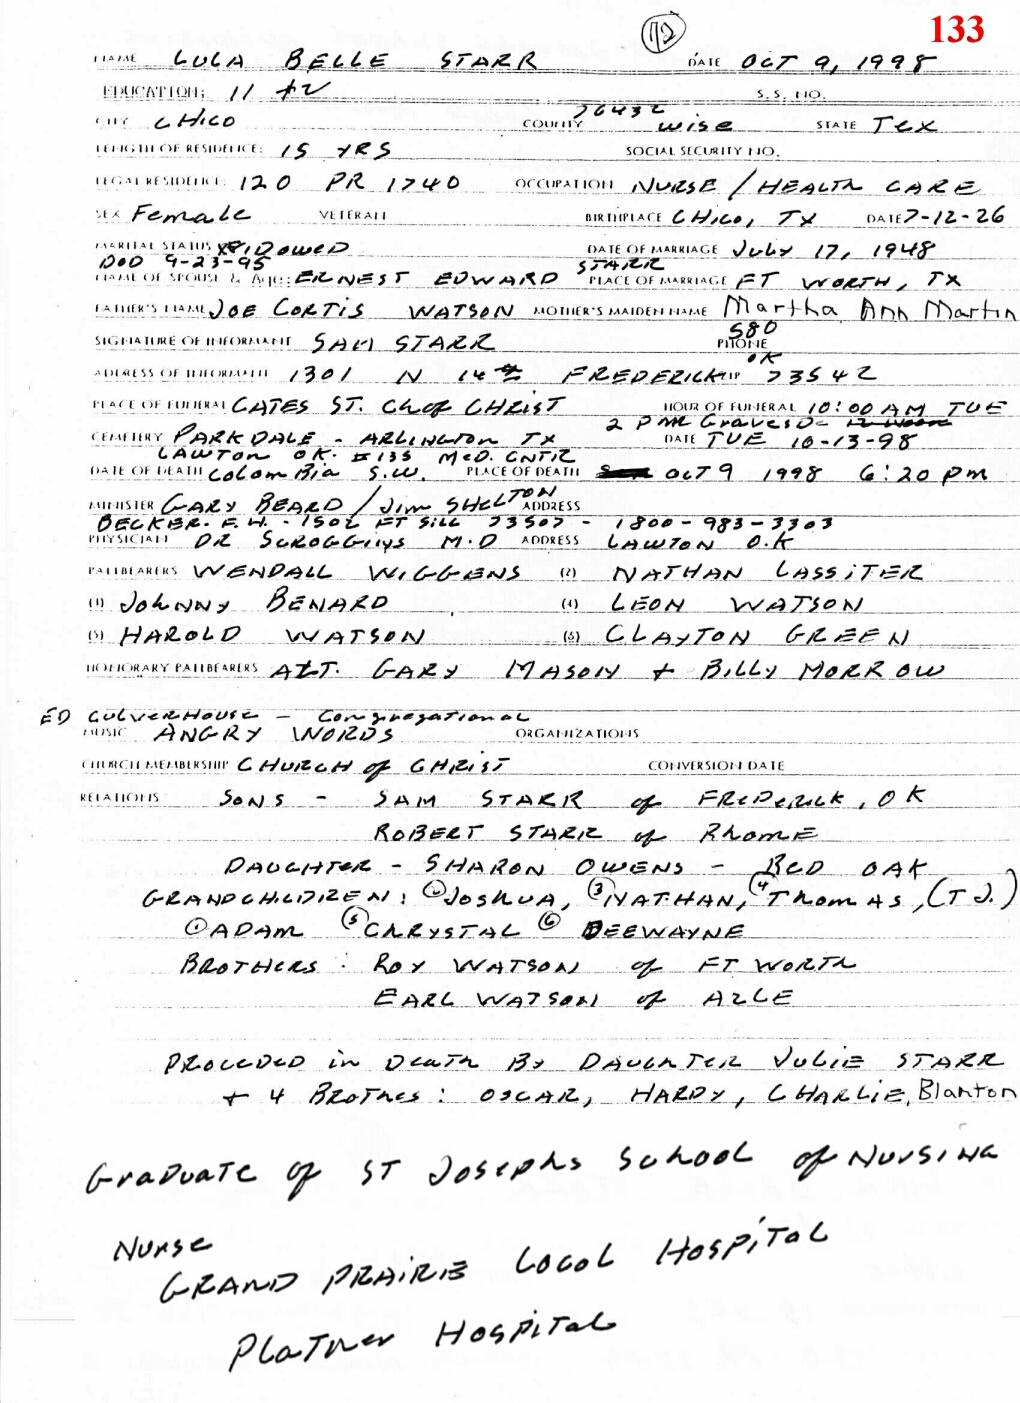 133
72
NAME LULA BELLE STARR DATE OCT 9, 1998
EDUCATION: 11 +2 S.S. NO.
CITY CHICO COUNTY 76432 wise STATE TEX
LENGTH OF RESIDENCE: 15 YRS SOCIAL SECURITY NO.
LEGAL RESIDENCE: 120 PR 1740 OCCUPATION NURSE / HEALTH CARE
SEX Female VETERAN BIRTHPLACE CHICO, TX DATE 7-12-26
MARITAL STATUS WIDOWED DATE OF MARRIAGE JULY 17, 1948
DOD 9-23-95 STARR
NAME OF SPOUSE & Age: ERNEST EDWARD PLACE OF MARRIAGE FT WORTH, TX
FATHER'S NAME JOE CORTIS WATSON MOTHER'S MAIDEN NAME Martha Ann Martin
SIGNATURE OF INFORMANT SAM STARR PHONE 580
ADDRESS OF INFORMANT 1301 N 14th FREDERICK OK ZIP 73542
PLACE OF FUNERAL CATES ST. Ch of CHRIST HOUR OF FUNERAL 10:00 AM TUE
2 PM Graveside
CEMETERY PARKDALE - ARLINGTON TX DATE TUE 10-13-98
LAWTON OK. #135 MED. CNTR
DATE OF DEATH Colombia S.W. PLACE OF DEATH OCT 9 1998 6:20 pm
MINISTER GARY BEARD / Jim SHELTON ADDRESS
BECKER. F.H. - 1502 FT SILL 73507 - 1800-983-3303
PHYSICIAN DR SCROGGINS M.D ADDRESS LAWTON O.K
PALLBEARERS WENDALL WIGGENS (2) NATHAN LASSITER
(3) JOHNNY BENARD (4) LEON WATSON
(5) HAROLD WATSON (6) CLAYTON GREEN
HONORARY PALLBEARERS ALT. GARY MASON + BILLY MORROW
ED CULVERHOUSE - Congregational
MUSIC ANGRY WORDS ORGANIZATIONS
CHURCH MEMBERSHIP CHURCH of CHRIST CONVERSION DATE
RELATIONS SONS - SAM STARR of FREDERICK, OK
ROBERT STARR of RHOME
DAUGHTER - SHARON OWENS - RED OAK
GRANDCHILDREN: ② JOSHUA, ③ NATHAN, ④ THOMAS, (T J.)
① ADAM ⑤ CHRYSTAL ⑥ DEEWAYNE
BROTHERS: ROY WATSON of FT WORTH
EARL WATSON of AZLE
PROCEDED in DEATH By DAUGHTER JULIE STARR
+ 4 BROTHES: OSCAR, HARDY, CHARLIE, Blanton
GRADUATE of ST JOSEPHS SCHOOL of NURSING
NURSE
GRAND PRAIRIE LOCOL HOSPITAL
PLATNER HOSPITAL